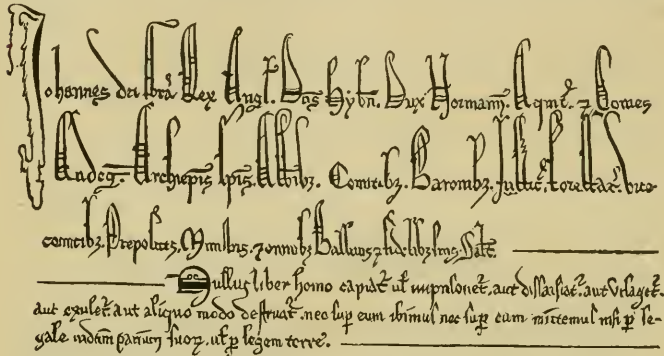 Johannes dei gra Rex Angl. Dns Hybn. Dux Normann. Aquit. ⁊ Comes
Andeg. Archiepis Epis. Abbibz. Comitibz. Baronibz. Justic. Forestar. vice
comitibz. Prepositis. Ministris. ⁊ omnibz Ballivis ⁊ fidelibz suis. Salt.
Nullus liber homo capiat. ul imprisonet. aut dissaisiat. aut utlaget.
aut exulet. aut aliquo modo destruat. nec sup eum ibimus nec sup eum mittemus nisi p le-
gale judicium parium suorz. ul p legem terre.